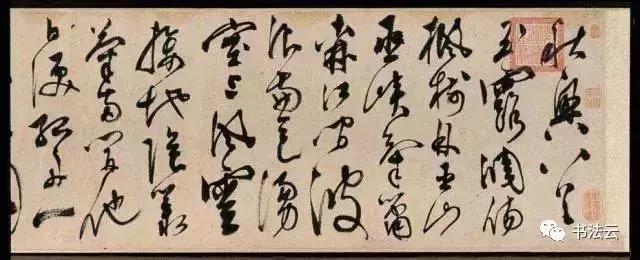 秋興八首
玉露凋傷
楓樹林巫山
巫峽氣蕭
森江間波
浪兼天湧
塞上風雲
接地陰叢
菊兩開他
日淚孤舟一
书法云